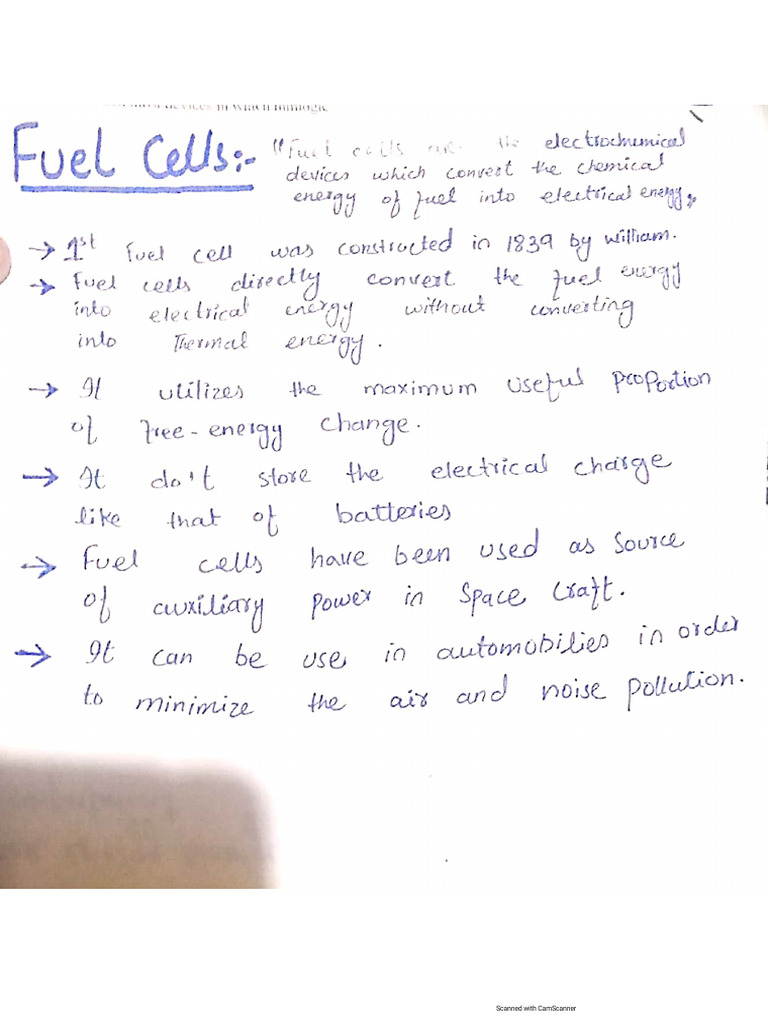 devices in which
Fuel Cells:-
"Fuel cells are the electrochemical
devices which convert the chemical
energy of fuel into electrical energy"
→ 1st Fuel cell was constructed in 1839 by william.
→ Fuel cells directly convert the fuel energy
into electrical energy without converting
into Thermal energy.
→ It utilizes the maximum useful proportion
of free-energy change.
→ It do't store the electrical charge
like that of batteries
→ Fuel cells have been used as source
of auxiliary power in space craft.
→ It can be use in automobilies in order
to minimize the air and noise pollution.
Scanned with CamScanner